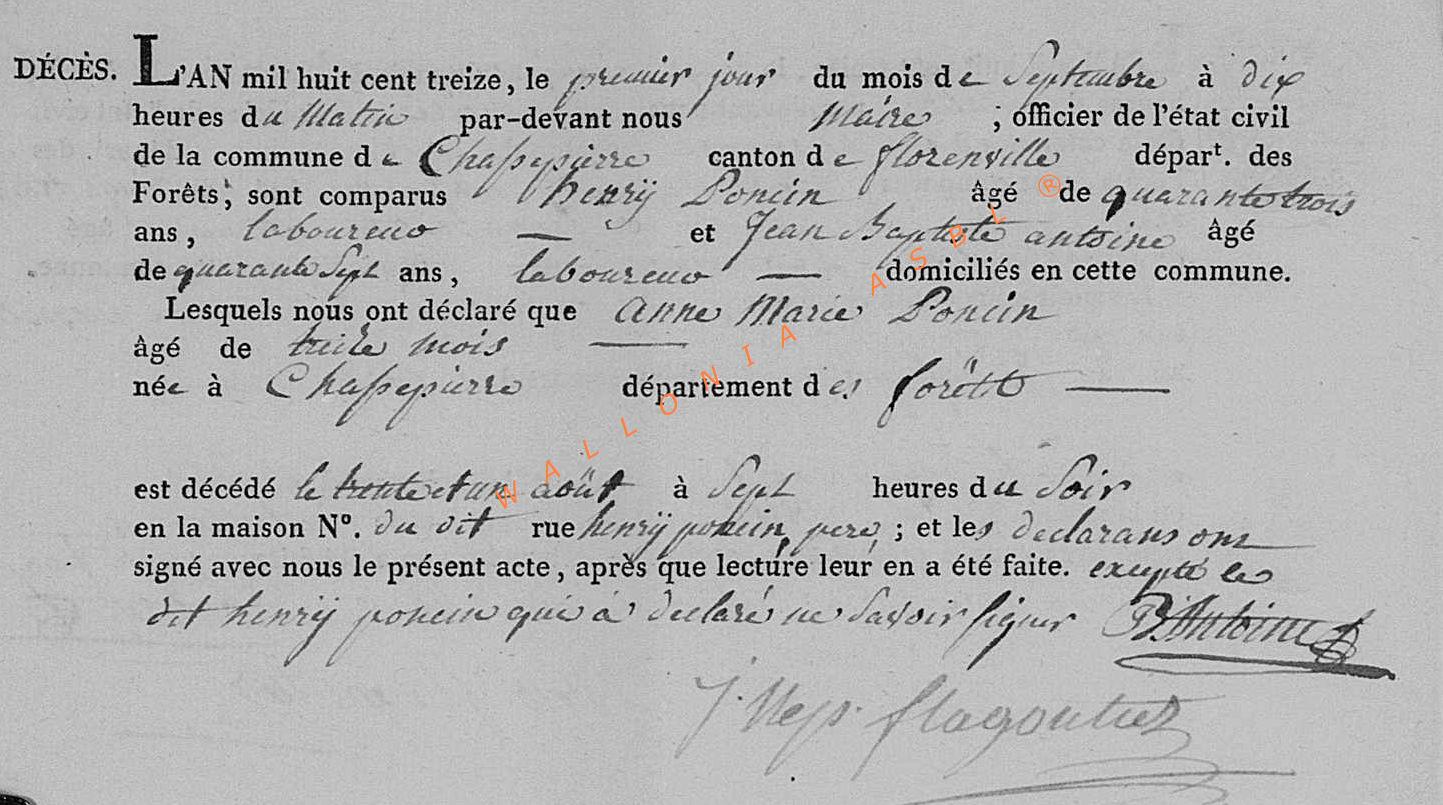 DÉCÈS. L'AN mil huit cent treize, le premier jour du mois de Septembre à dix
heures du Matin par-devant nous Maire ; officier de l'état civil
de la commune de Chassepierre canton de florenvilleépar^t. des
Forêts, sont comparus henrÿ Poncin âgé de quarante trois
ans, laboureur — et Jean Baptiste antoine âgé
de quarante Sept ans, laboureur — domiciliés en cette commune.
Lesquels nous ont déclaré que anne Marie Poncin
âgé de treize mois —
née à Chassepierre département des forêts —
est décédé le trente et un août à Sept heures du Soir
en la maison N°. du dit rue henrÿ poncin, pere ; et les declarans ont
signé avec nous le présent acte, après que lecture leur en a été faite. excepté le
dit henrÿ poncin qui à declaré ne Savoir signer B. Antoine
J. Nep. flagontier
WALLONIA ASBL ®